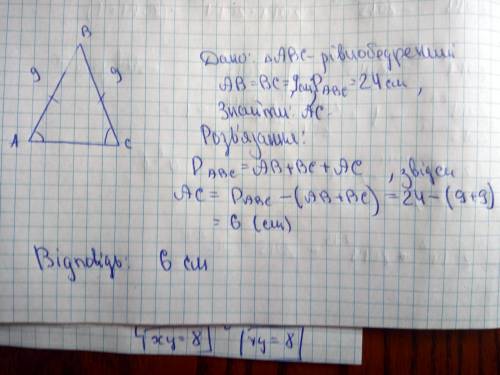 B
9 9
A C
Дано: △ABC - рівнобедрений
AB = BC = 9см, P_ABC = 24 см,
Знайти: AC.
Розв'язання:
P_ABC = AB + BC + AC, звідси
AC = P_ABC - (AB + BC) = 24 - (9+9)
= 6 (см)
Відповідь: 6 см
xy = 8 xy = 8